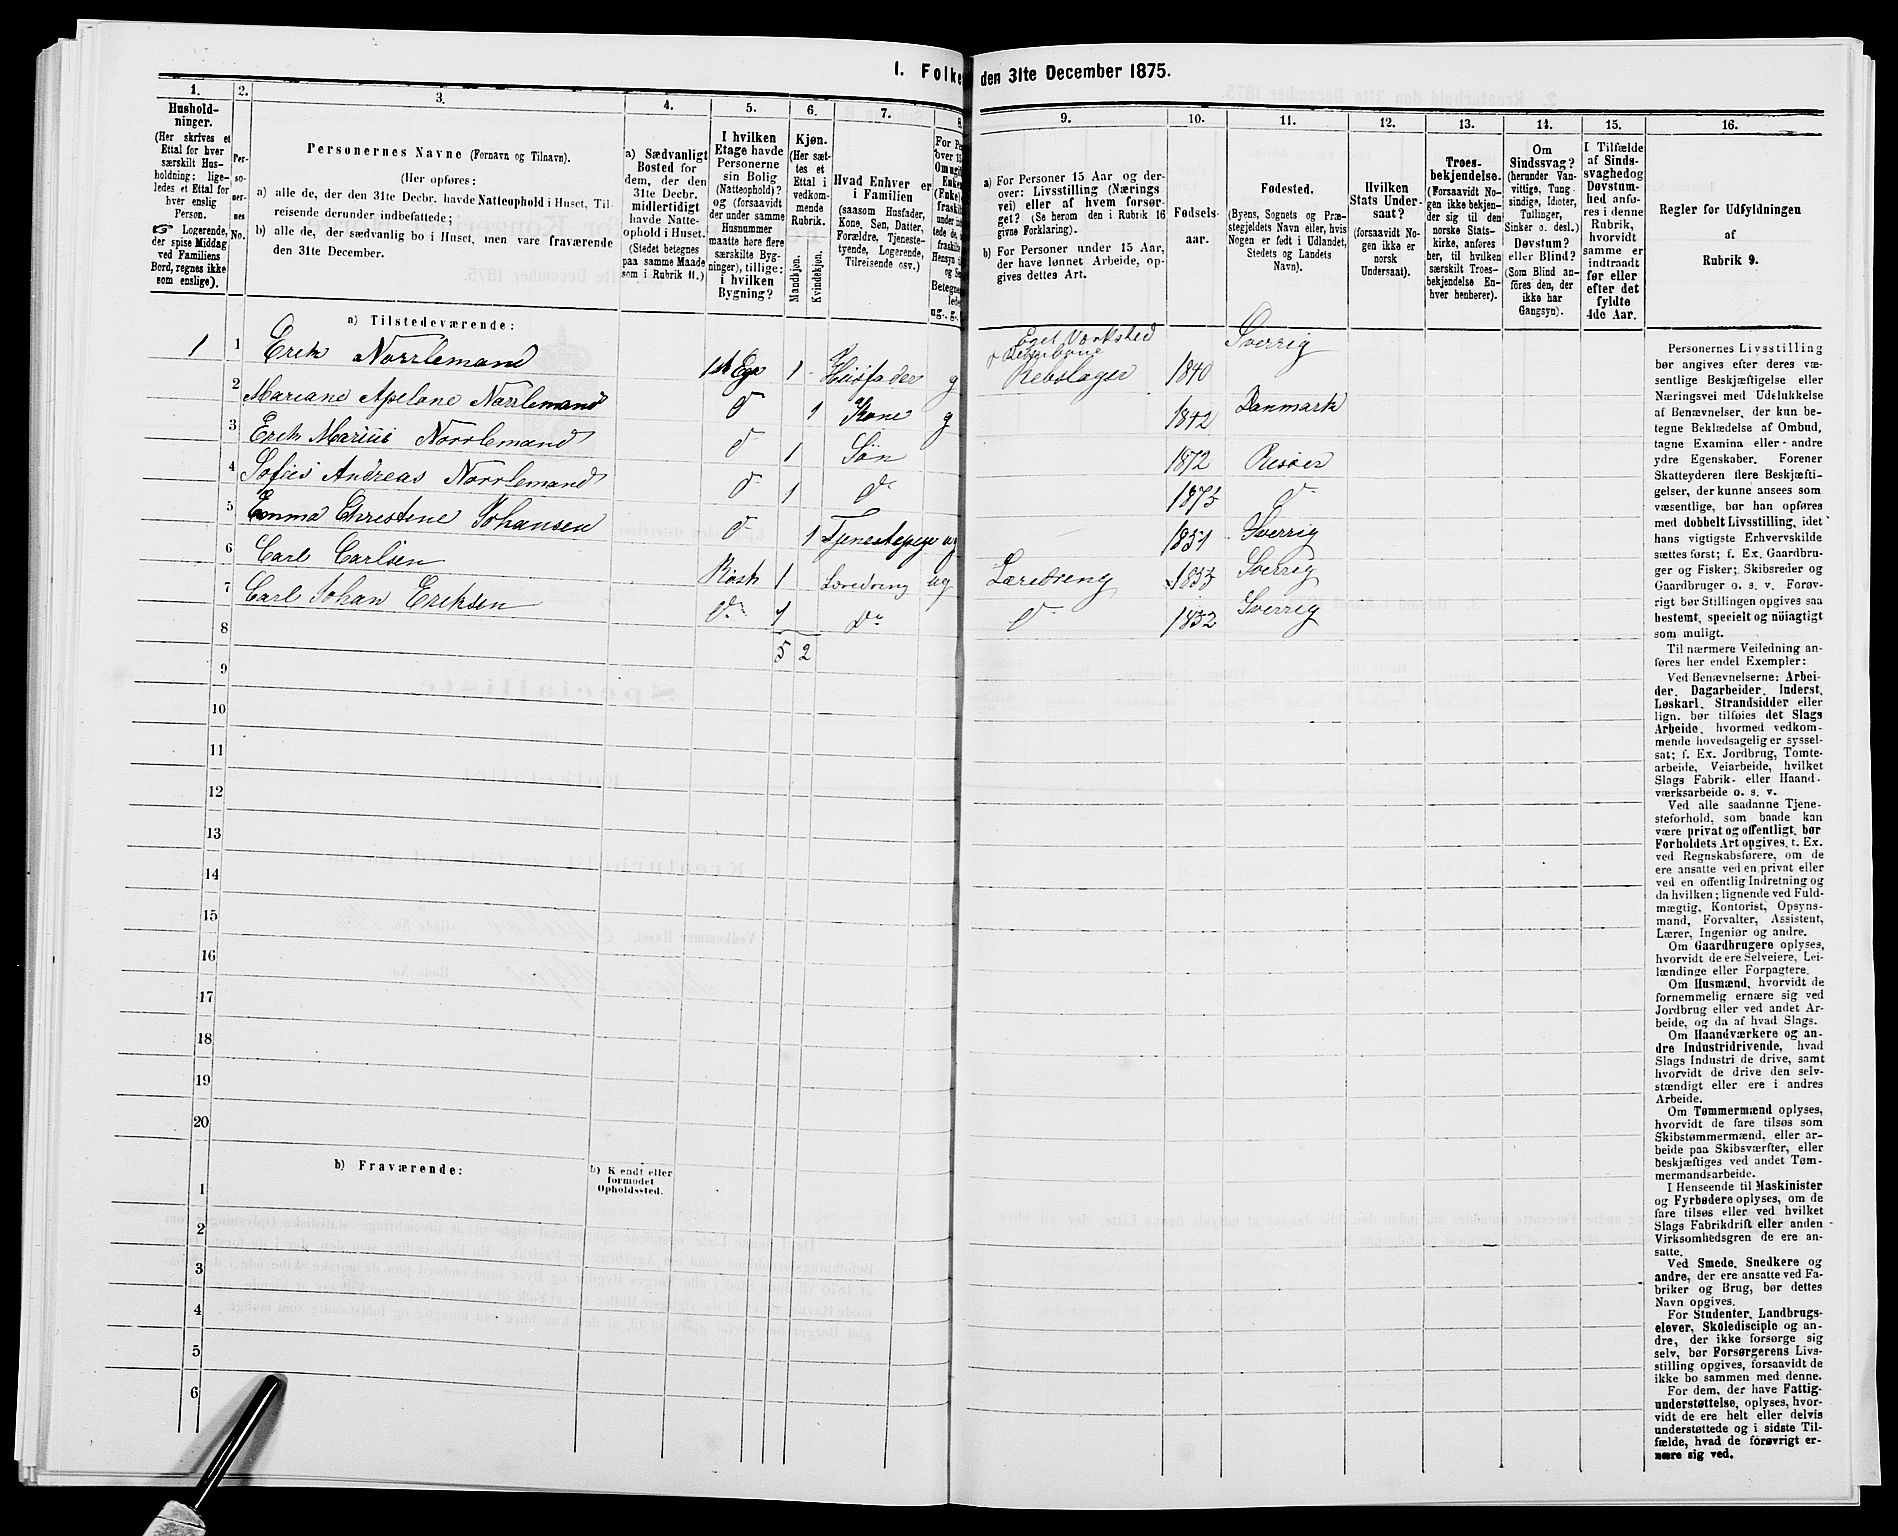 I. Folke den 31te December 1875.
1. 2. 3. 4. 5. 6. 7. 8. 9. 10. 11. 12. 13. 14. 15. 16.
Hushold-
ninger.
(Her skrives et
Ettal for hver
særskilt Hus-
holdning; lige-
ledes et Ettal for
hver enslig
Person.
☞ Logerende,
der spise Middag
ved Familiens
Bord, regnes ikke
som enslige).
Per-
so-
ner-
nes
No.
Personernes Navne (Fornavn og Tilnavn).
(Her opføres:
a) alle de, der den 31te Decbr. havde Natteophold i Huset, Til-
reisende derunder indbefattede;
b) alle de, der sædvanlig bo i Huset, men vare fraværende
den 31te December.
a) Sædvanligt
Bosted for
dem, der den
31te Decbr.
midlertidigt
havde Natte-
ophold i Huset.
(Stedet betegnes
paa samme Maade
som i Rubrik 11.)
I hvilken
Etage havde
Personerne
sin Bolig
(Natteophold)?
og (forsaavidt
der under samme
Husnummer
maatte høre flere
særskilte Byg-
ninger), tillige:
i hvilken
Bygning?
Kjøn.
(Her sæt-
tes et
Ettal i
vedkom-
mende
Rubrik.
Mandkjøn.
Kvindekjøn.
Hvad Enhver er
i Familien
(saasom Husfader,
Kone, Søn, Datter,
Forældre, Tjeneste-
tyende, Logerende,
Tilreisende osv.)
For Pe
over 15
Om ugif
Enke
(Enke)
fraskil
under in
tede de,
fraskil
Hensyn
og Se
Betegne
lede
ug., g.,
a) For Personer 15 Aar og der-
over: Livsstilling (Nærings
vei) eller af hvem forsør-
get? (Se herom den i Rubrik 16
givne Forklaring).
b) For Personer under 15 Aar,
der have lønnet Arbeide, op-
gives dettes Art.
Fødsels-
aar.
Fødested.
(Byens, Sognets og Præ-
stegjeldets Navn eller, hvis
Nogen er født i Udlandet,
Stedets og Landets
Navn).
Hvilken
Stats Under-
saat?
(forsaavidt No-
gen ikke er
norsk
Undersaat).
Troes-
bekjendelse.
(Forsaavidt No-
gen ikke bekjen-
der sig til den
norske Stats-
kirke, anføres
her, til hvilken
særskilt Troes-
bekjendelse En-
hver henhører).
Om
Sindssvag?
(herunder Van-
vittige, Tung-
sindige, Idioter,
Tullinger,
Sinker o. desl.)
Døvstum?
eller Blind?
(Som Blind an-
føres den, der
ikke har
Gangsyn).
I Tilfælde
af Sinds-
svaghed og
Døvstum-
hed anfø-
res i denne
Rubrik,
hvorvidt
samme er
indtraadt
før eller
efter det
fyldte
4de Aar.
Regler for Udfyldningen
af
Rubrik 9.
a) Tilstedeværende:
1 1 Erik Norrlemand 1st Ege 1 Husfader g Eget Værksted
Rebslager 1840 Sverrig
2 Mariane Apelone Norrlemand d 1 Kone g 1842 Danmark
3 Erik Marius Norrlemand d 1 Søn 1872 Risøer
4 Sofus Andreas Norrlemand d 1 d 1873 d
5 Emma Christine Johansen d 1 Tjenestepige ug 1851 Sverrig
6 Carl Carlsen 1 Læredreng ug Læredreng Sverrig
7 Carl Johan Eriksen do 1 Do d Sverrig
8 5 2
9
10
11
12
13
14
15
16
17
18
19
20
b) Fraværende:
b) Kjendt eller
formodet
Opholdssted.
1
2
3
4
5
6
Personernes Livsstilling
bør angives efter deres væ-
sentlige Beskjæftigelse eller
Næringsvei med Udelukkelse
af Benævnelser, der kun be-
tegne Beklædelse af Ombud,
tagne Examina eller andre
ydre Egenskaber. Forener
Skatteyderen flere Beskjæfti-
gelser, der kunne ansees som
væsentlige, bør han opføres
med dobbelt Livsstilling, idet
hans vigtigste Erhvervskilde
sættes først; f. Ex. Gaardbru-
ger og Fisker; Skibsreder og
Gaardbruger o. s. v. Forøv-
rigt bør Stillingen opgives saa
bestemt, specielt og nøiagtigt
som muligt.
Til nærmere Veiledning an-
føres her endel Exempler:
Ved Benævnelserne: Arbei-
der, Dagarbeider, Inderst,
Løskarl, Strandsidder eller
lign. bør tilføies det Slags
Arbeide, hvormed vedkom-
mende hovedsagelig er syssel-
sat; f. Ex. Jordbrug, Tomte-
arbeide, Veiarbeide, hvilket
Slags Fabrik- eller Haand-
værksarbeide o. s. v.
Ved alle saadanne Tjene-
steforhold, som baade kan
være privat og offentligt, bør
Forholdets Art opgives, t. Ex.
ved Regnskabsførere, om de
ere ansatte ved en privat eller
ved en offentlig Indretning og
da hvilken; lignende ved Fuld-
mægtig, Kontorist, Opsyns-
mand, Forvalter, Assistent,
Lærer, Ingeniør og andre.
Om Gaardbrugere oplyses,
hvorvidt de ere Selveiere, Lei-
lændinge eller Forpagtere.
Om Husmænd, hvorvidt de
fornemmelig ernære sig ved
Jordbrug eller ved andet Ar-
beide, og da af hvad Slags.
Om Haandværkere og an-
dre Industridrivende, hvad
Slags Industri de drive, samt
hvorvidt de drive den selv-
stændigt eller ere i andres
Arbeide.
Om Tømmermænd oplyses,
hvorvidt de fare tilsøs som
Skibstømmermænd, eller ar-
beide paa Skibsværfter, eller
beskjæftiges ved andet Tøm-
mermandsarbeide.
I Henseende til Maskinister
og Fyrbødere oplyses, om de
fare tilsøs eller ved hvilket
Slags Fabrikdrift eller anden
Virksomhedsgren de ere an-
satte.
Ved Smede, Snedkere og
andre, der ere ansatte ved Fa-
briker og Brug, bør dettes
Navn opgives.
For Studenter, Landbrugs-
elever, Skoledisciple og an-
dre, der ikke forsørge sig
selv, bør Forsørgerens Livs-
stilling opgives, forsaavidt de
ikke bo sammen med denne.
For dem, der have Fattig-
understøttelse, oplyses, hvor-
vidt de ere helt eller delvis
understøttede og i sidste Til-
fælde, hvad de forøvrigt er-
nære sig ved.